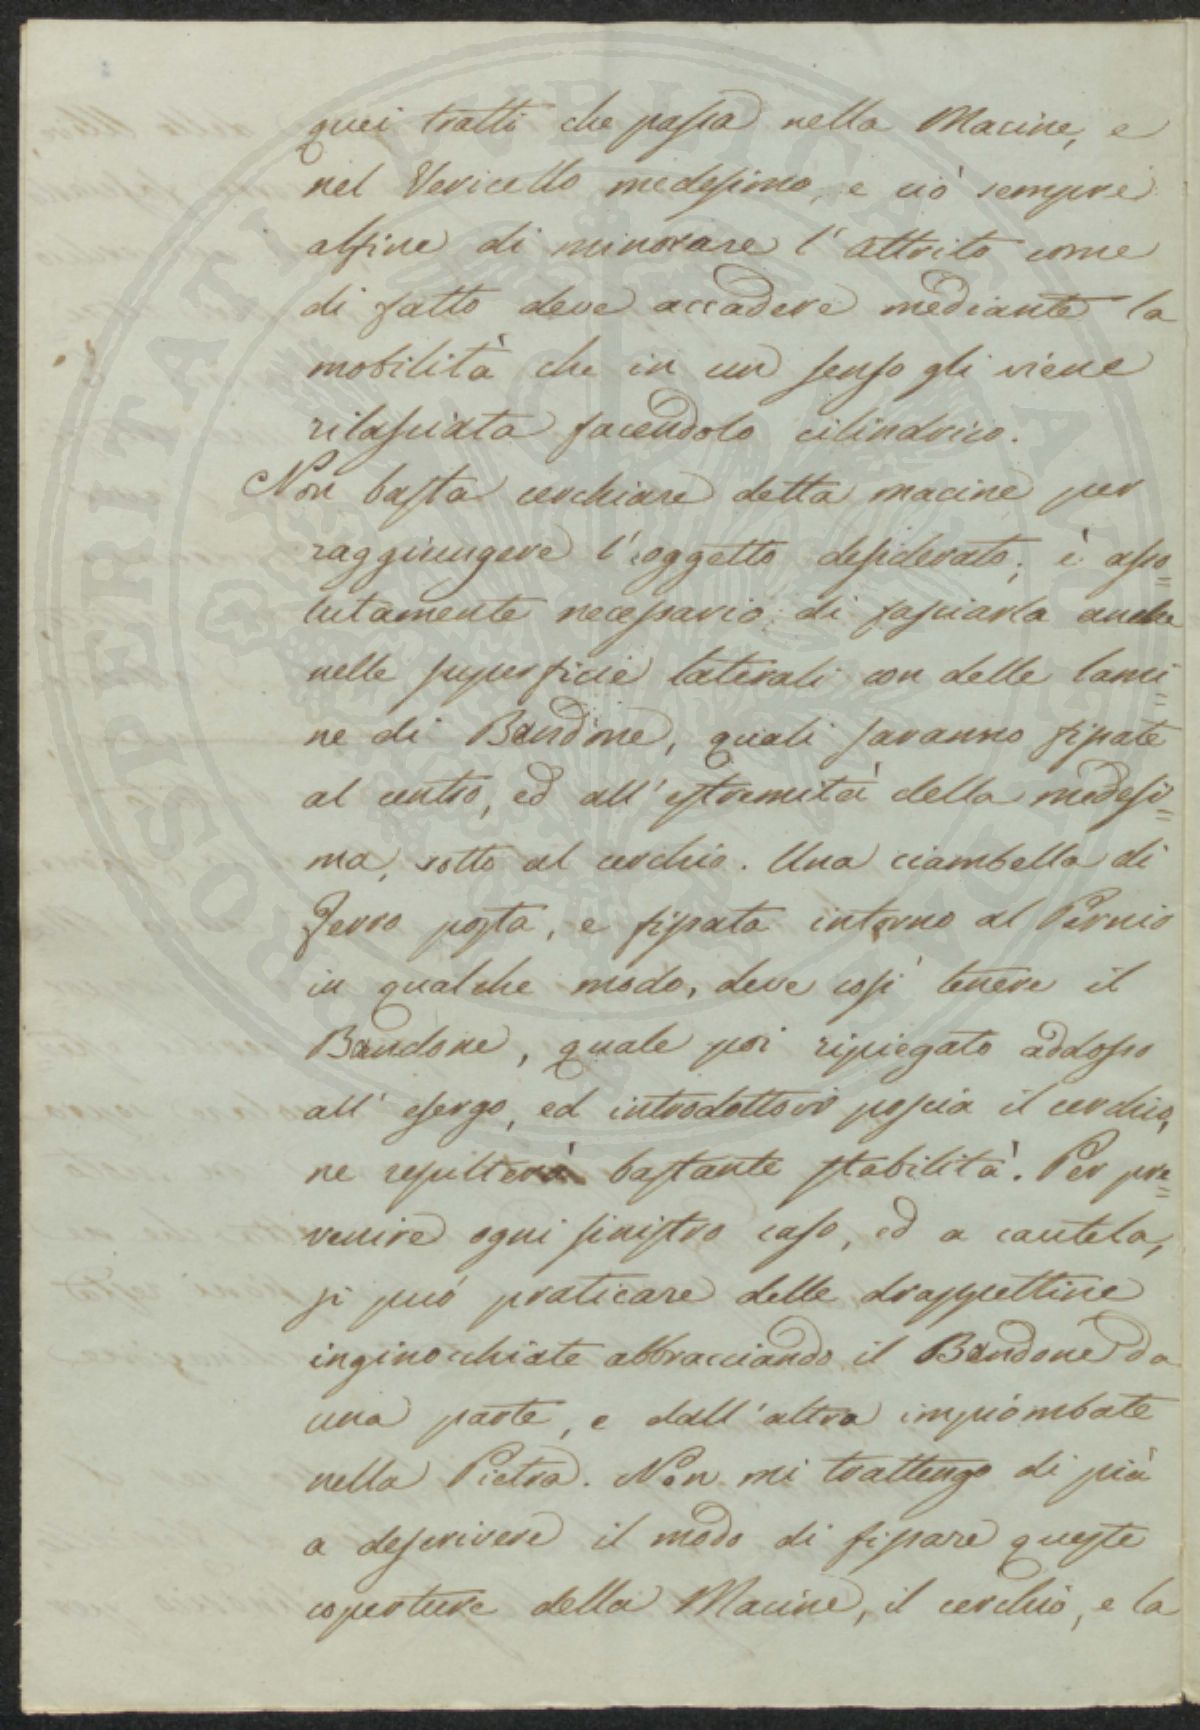 quei tratti che passa nella Macine, e
nel Vericello medesimo, e ciò sempre
alfine di minorare l'attrito come
di fatto deve accadere mediante la
mobilità che in un senso gli viene
rilasciata facendolo cilindrico.
Non basta cerchiare detta macine per
raggiungere l'oggetto desiderato; è asso=
lutamente necessario di fasciarla anche
nelle superficie laterali con delle lami=
ne di Bandone, quali saranno fissate
al centro, ed all'estremità della medesi=
ma, sotto al cerchio. Una ciambella di
Ferro posta, e fissata intorno al Pernio
in qualche modo, deve così tenere il
Bandone, quale poi ripiegato addosso
all'esergo, ed introdottovi poscia il cerchio,
ne resulterà bastante stabilità. Per pre=
venire ogni sinistro caso, ed a cautela,
si può praticare delle drappettine
inginocchiate abbracciando il Bandone da
una parte, e dall'altra impiombate
nella Pietra. Non mi trattengo di più
a descrivere il modo di fissare queste
coperture della Macine, il cerchio, e la
PROSPERITATI PVBLICAE AVGENDAE